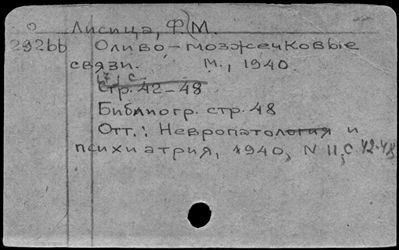 Лисица, Ф. М.
292bb Оливо-мозжечковые
связи. М., 1940.
7 с.
Стр. 42-48
Библиогр. стр. 48
Отт.: Невропатология и
психиатрия, 1940, N 11, с. 42-48